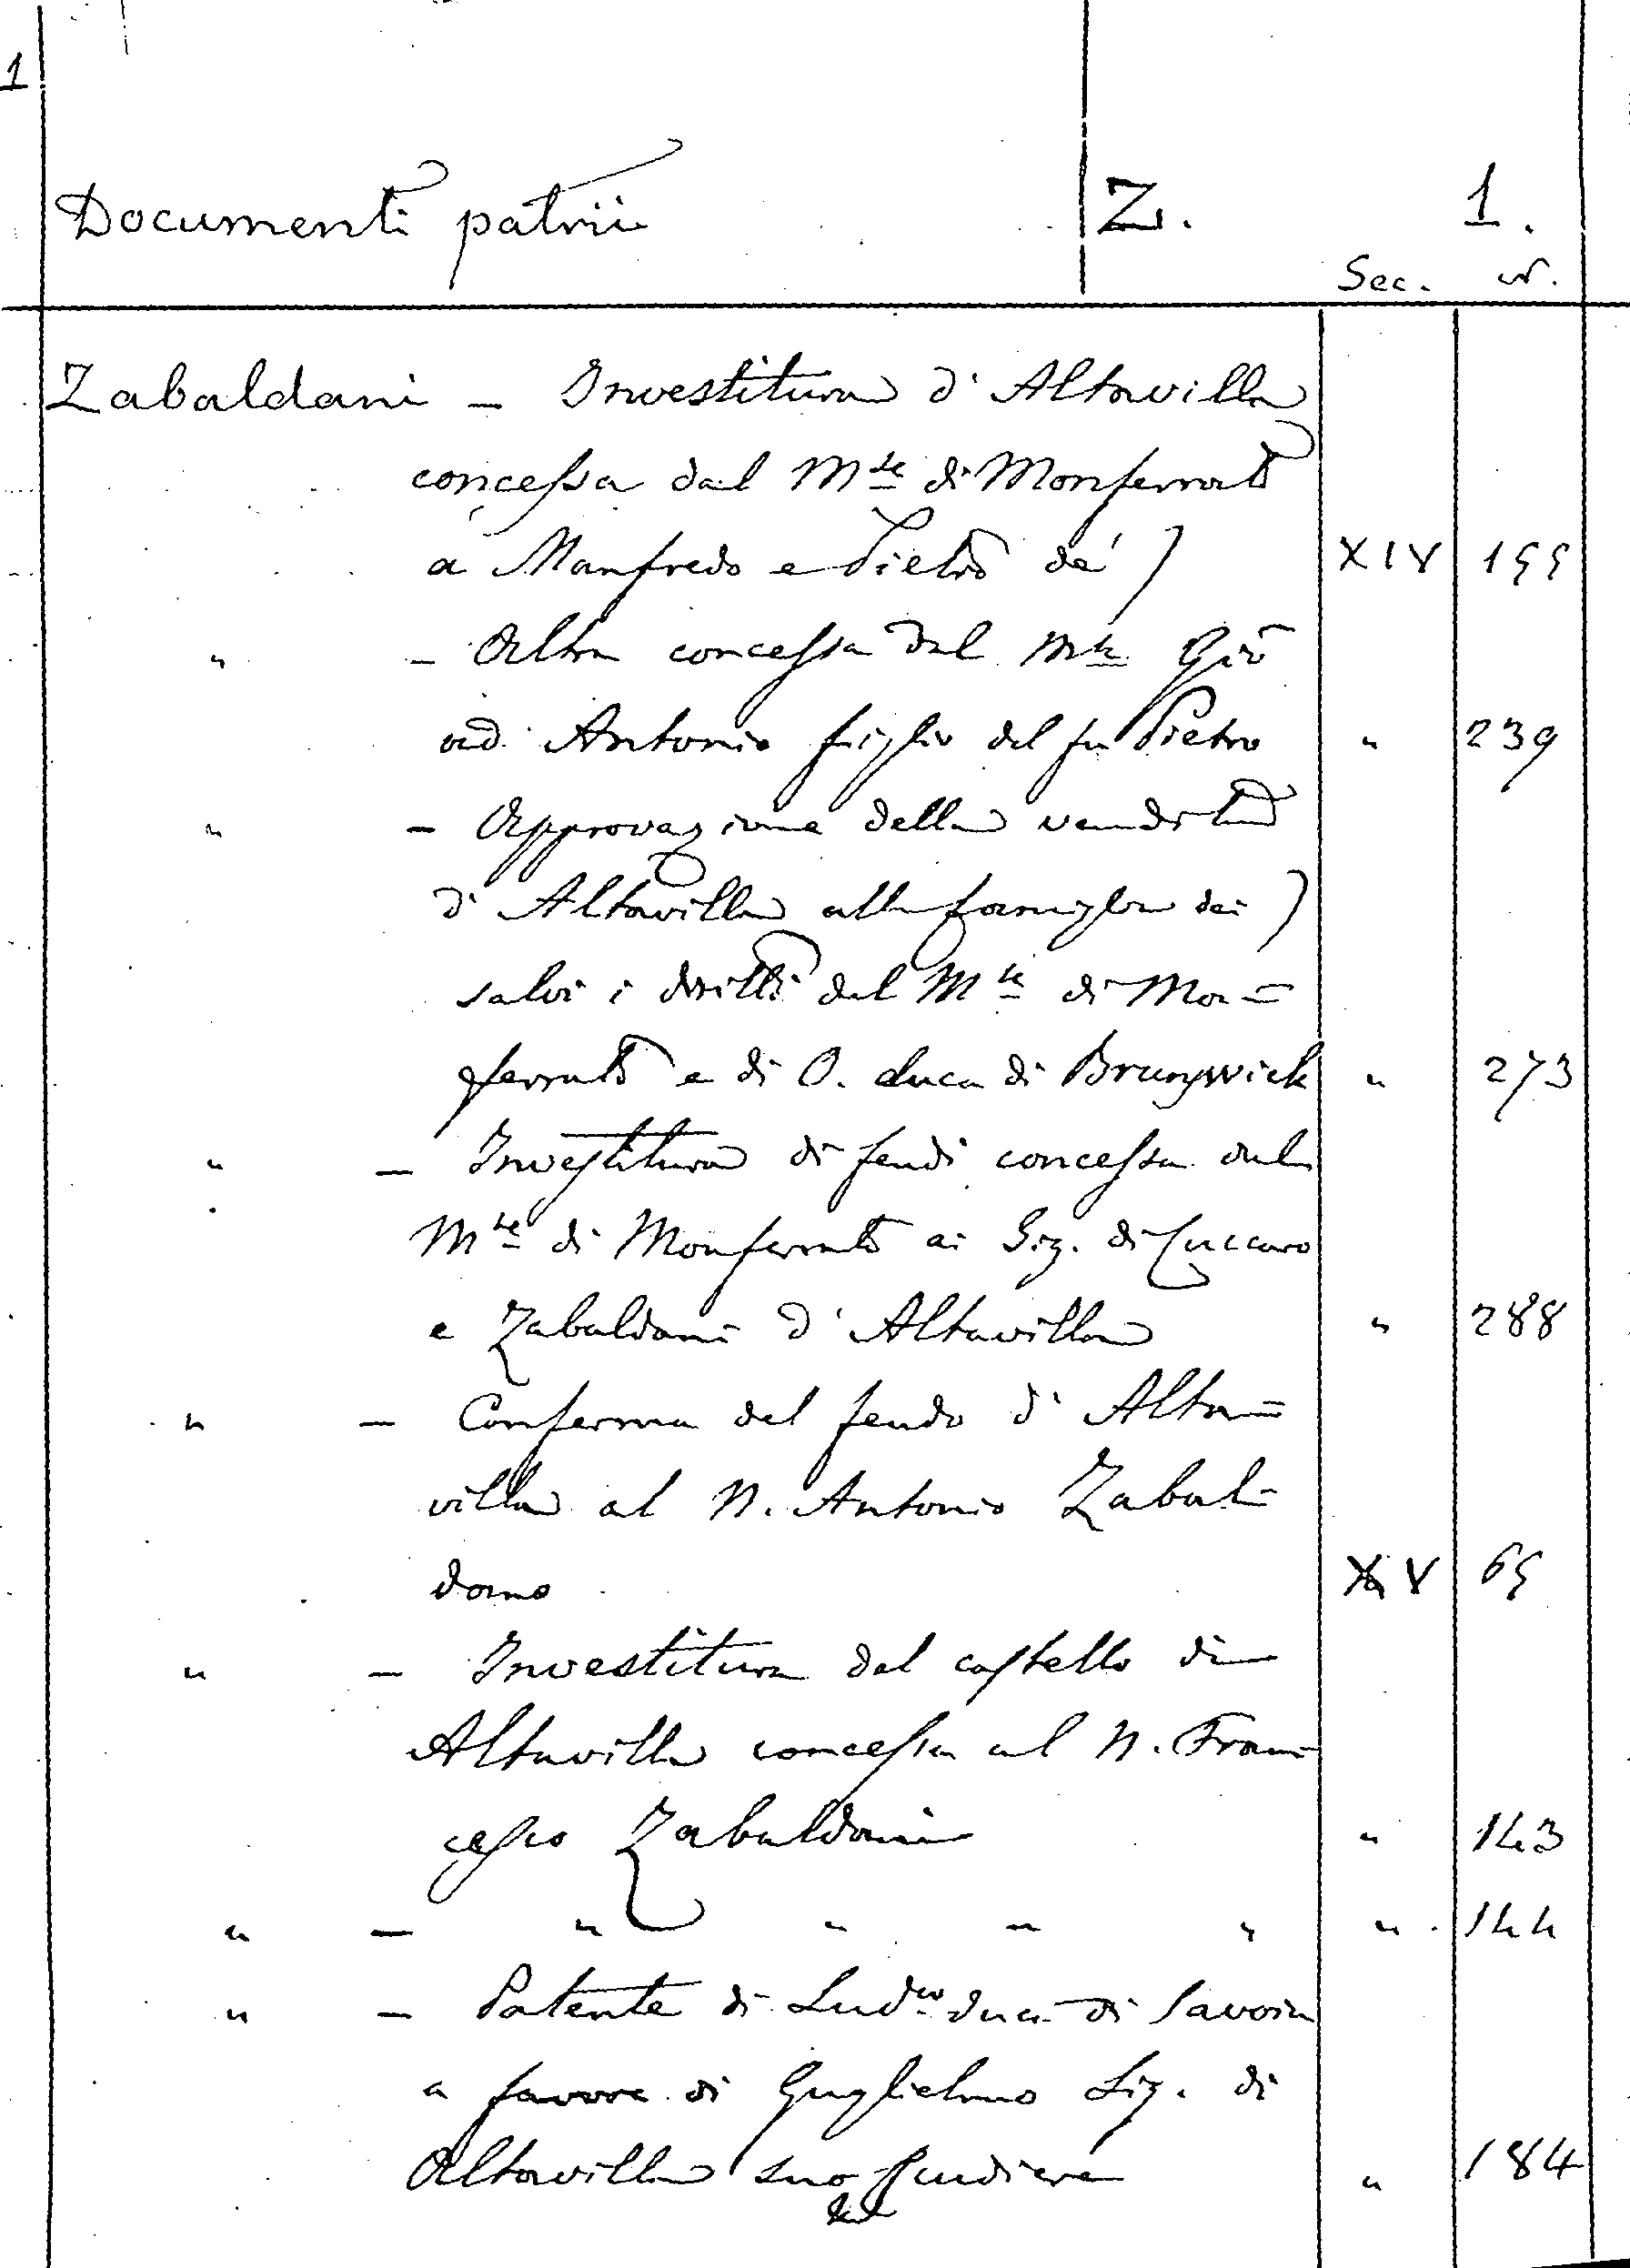 1
Documenti patrii Z. 1.
Sec. N.
Zabaldani - Investitura d'Altavilla
concessa dal Mse di Monferrato
a Manfredo e Pietro de' ) XIV 155
" - Altra concessa dal Mse Gio
ad Antonio figlio del fu Pietro " 239
" - Approvazione della vendita
d'Altavilla alla famiglia dei )
salvi i diritti del Mse di Mon=
ferrato e di O. duca di Brunswick " 273
" - Investitura di feudi concessa dal
Mse di Monferrato ai Sig. di Cuccaro
e Zabaldani d'Altavilla " 288
" - Conferma del feudo d'Alta=
villa al N. Antonio Zabal=
dano XV 65
" - Investitura del castello di
Altavilla concessa al N. Fran=
cesco Zabaldani " 143
" - " " " " " 144
" - Patente di Ludco duca di Savoia
a favore di Guglielmo Sig. di
Altavilla suo scudiere " 184